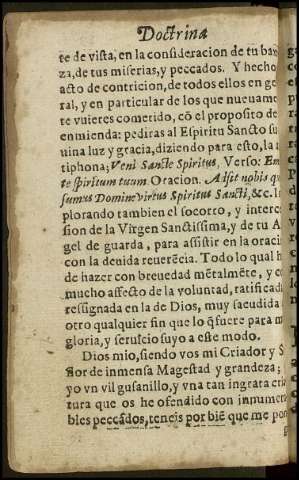 Doctrina
te de vista, en la consideracion de tu bax
za, de tus miserias, y peccados. Y hecho
acto de contricion, de todos ellos en ge
ral, y en particular de los que nueuame
te vuieres cometido, cõ el proposito de
enmienda: pediras al Espiritu Sancto su
uina luz y gracia, diziendo para esto, la
tiphona; Veni Sancte Spiritus, Verso: Em
te spiritum tuum. Oracion. Adsit nobis qu
sumus Domine virtus Spiritus Sancti, &c. I
plorando tambien el socorro, y interce
sion de la Virgen Sanctissima, y de tu A
gel de guarda, para assistir en la oraci
con la deuida reuerẽcia. Todo lo qual h
de hazer con breuedad mẽtalmẽte, y co
mucho affecto de la voluntad, ratificad
ressignada en la de Dios, muy sacudida
otro qualquier fin que lo q̃ fuere para m
gloria, y seruicio suyo a este modo.
Dios mio, siendo vos mi Criador y S
ñor de inmensa Magestad y grandeza;
yo vn vil gusanillo, y vna tan ingrata cria
tura que os he ofendido con innumera
bles peccados, teneis por biẽ que me po